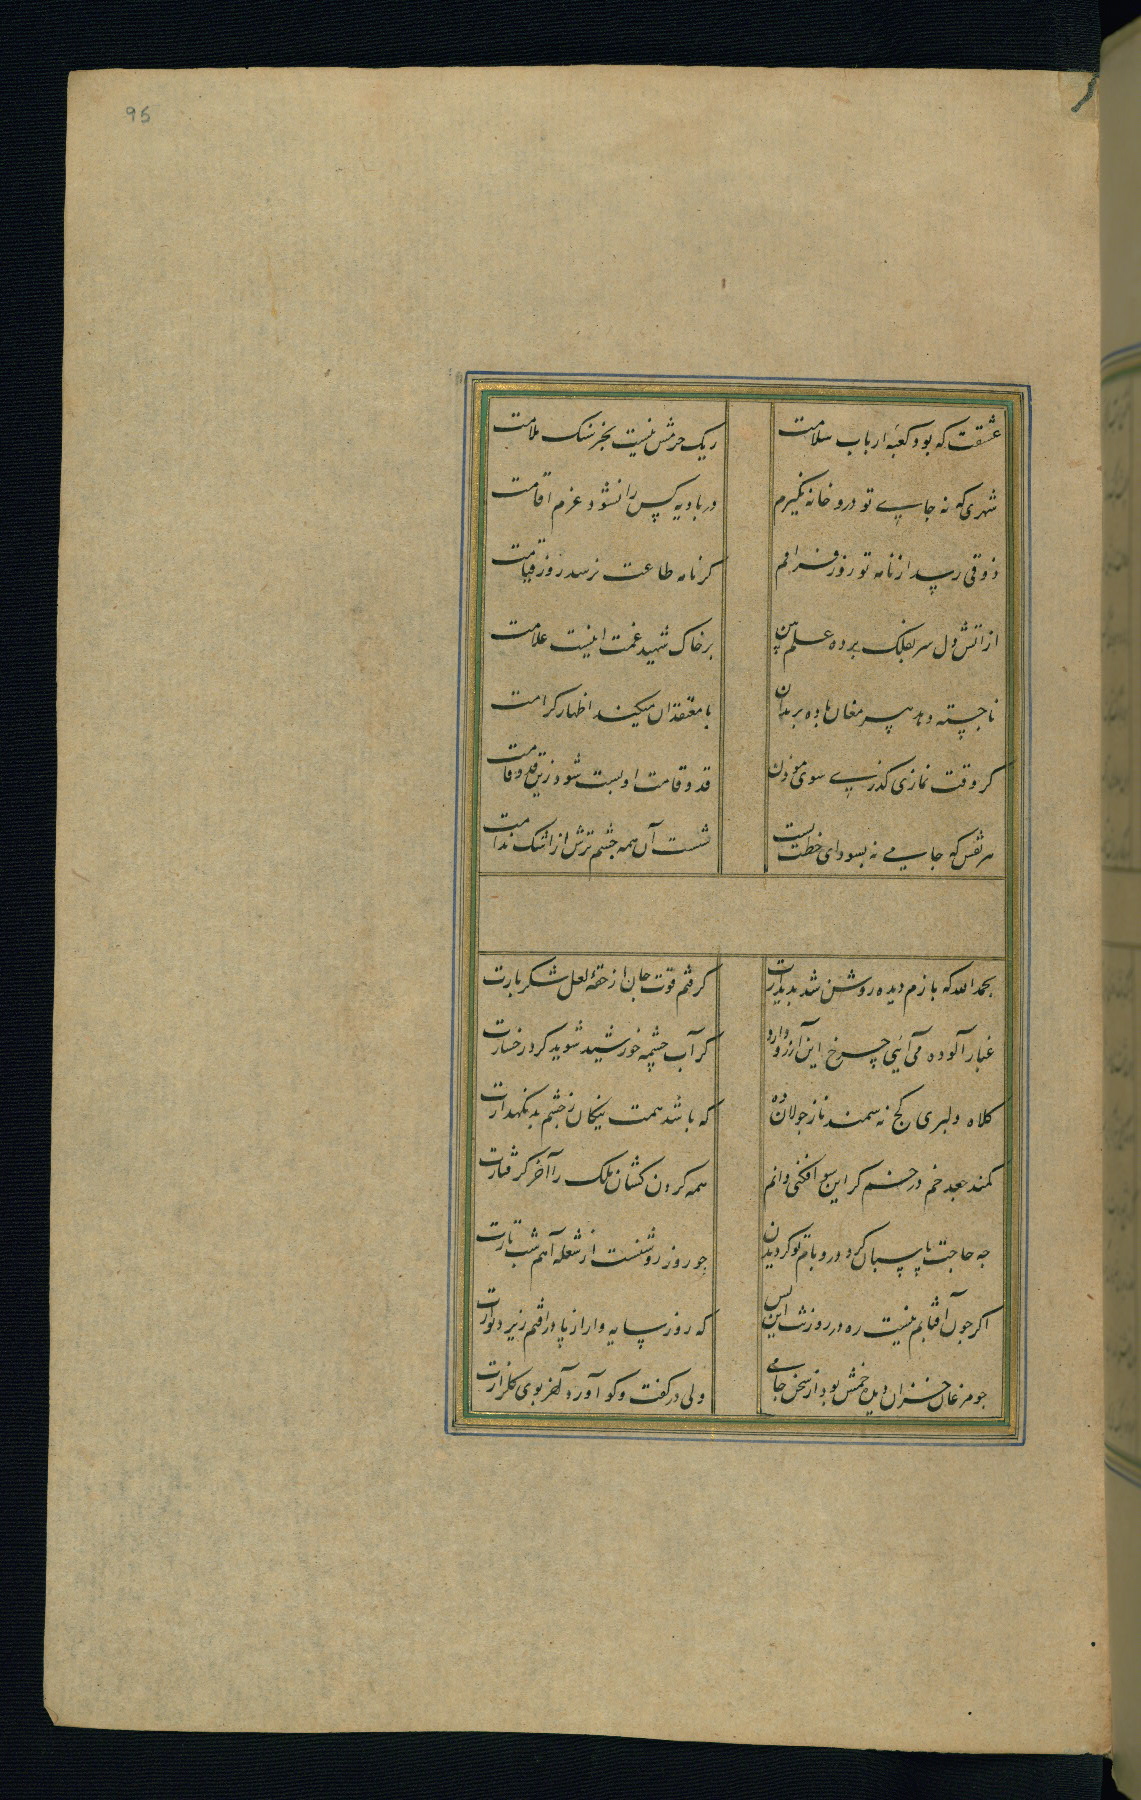 95
عشقت که بود کعبه ارباب سلامت
ریک حرمش نیست بجز سنک ملامت
شهری که نه جای تو درو خانه نکیرم
در بادیه کس را نشود عزم اقامت
ذوقی رسد از نامه تو روز فراقم
کز نامه طاعت نرسد روز قیامت
از آتش دل سر بفلک برده علم بین
بر خاک شهید غمت اینست علامت
ناجسته دهد پیر مغان باده بریدان
با معتقدان میکند اظهار کرامت
کر وقت نمازی کذری سوی موذن
قد و قامت او بست شود زین قد و قامت
هر نقش که جامی نه بسودای خطت بست
شست آن همه چشم ترش از اشک ندامت
بحمد الله که بازم دیده روشن شد بدیدارت
کرفتم قوت جان از حقه لعل شکربارت
غبار آلوده می آئی چرخ این آرزو دارد
کز آب چشمه خورشید شوید کرد رخسارت
کلاه دلبری کج نه سمند ناز جولان ده
که باشد همت نیکان ز چشم بد نکهدارت
کمند جعد خم در خم کر این سو افکنی دانم
همه کردن کشان ملک را آخر کرفتارت
چه حاجت پاسبان کرد در و بام تو کردیدن
چو روز روشنست از شعله آهم شب تارت
اکر چون آفتابم نیست ره در روزنت این بس
که روزی سایه وار از پا درافتم زیر دیوارت
چو مرغان خزان دیده خمش بود از سخن جامی
ولی در کفت و کو آورد آخر بوی کلزارت